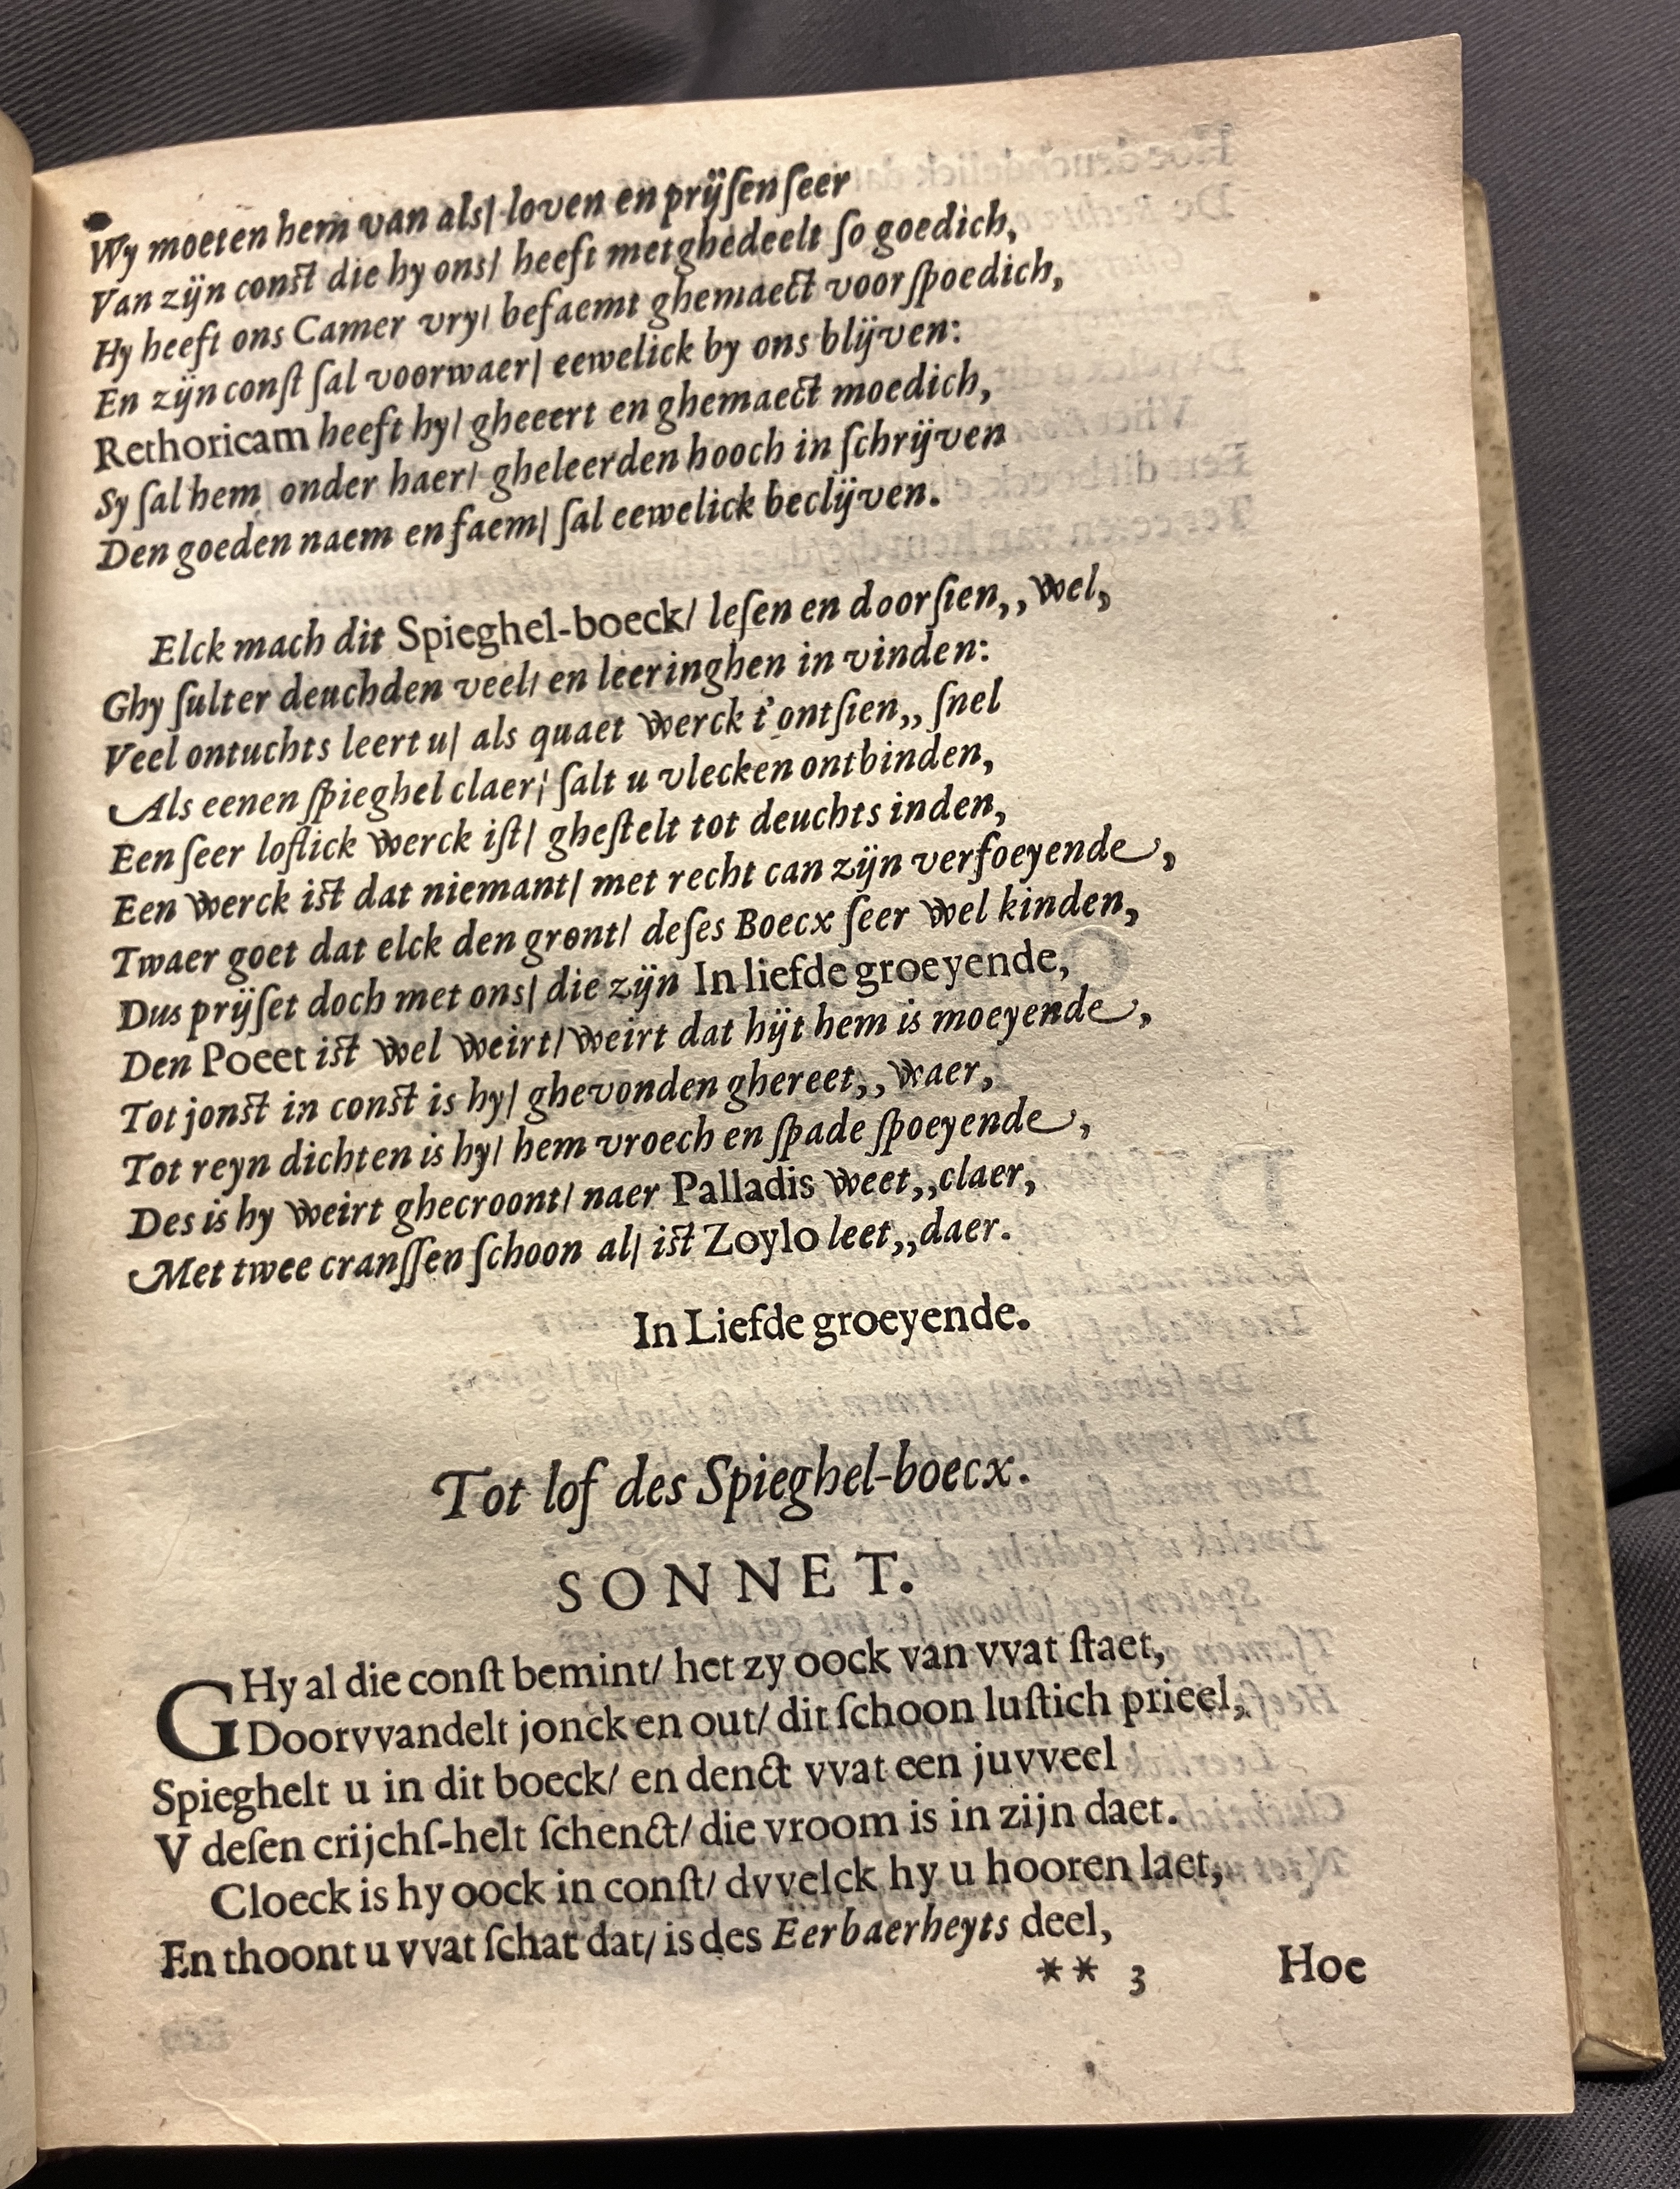 Wy moeten hem van als/ loven en prijſen ſeer
Van zijn conſt die hy ons/ heeft metghedeelt ſo goedich,
Hy heeft ons Camer vry/ befaemt ghemaect voorſpoedich,
En zijn conſt ſal voorwaer/ eewelick by ons blijven:
Rethoricam heeft hy/ gheeert en ghemaect moedich,
Sy ſal hem onder haer/ gheleerden hooch in ſchrijven
Den goeden naem en faem/ ſal eewelick beclijven.
Elck mach dit Spieghel-boeck/ leſen en doorſien,, wel,
Ghy ſulter deuchden veel/ en leeringhen in vinden:
Veel ontuchts leert u/ als quaet werck t'ontſien,, ſnel
Als eenen ſpieghel claer/ ſalt u vlecken ontbinden,
Een ſeer loflick werck iſt/ gheſtelt tot deuchts inden,
Een werck iſt dat niemant/ met recht can zijn verfoeyende,
Twaer goet dat elck den gront/ deſes Boecx ſeer wel kinden,
Dus prijſet doch met ons/ die zijn In liefde groeyende,
Den Poeet iſt wel weirt/ weirt dat hijt hem is moeyende,
Tot jonſt in conſt is hy/ ghevonden ghereet,, waer,
Tot reyn dichten is hy/ hem vroech en ſpade ſpoeyende,
Des is hy weirt ghecroont/ naer Palladis weet,, claer,
Met twee cranſſen ſchoon al/ iſt Zoylo leet,, daer.
In Liefde groeyende.
Tot lof des Spieghel-boecx.
SONNET.
GHy al die conſt bemint/ het zy oock van vvat ſtaet,
Doorvvandelt jonck en out/ dit ſchoon luſtich prieel,
Spieghelt u in dit boeck/ en denct vvat een juvveel
V deſen crijchſ-helt ſchenct/ die vroom is in zijn daet.
Cloeck is hy oock in conſt/ dvvelck hy u hooren laet,
En thoont u vvat ſchat dat/ is des Eerbaerheyts deel,
** 3 Hoe